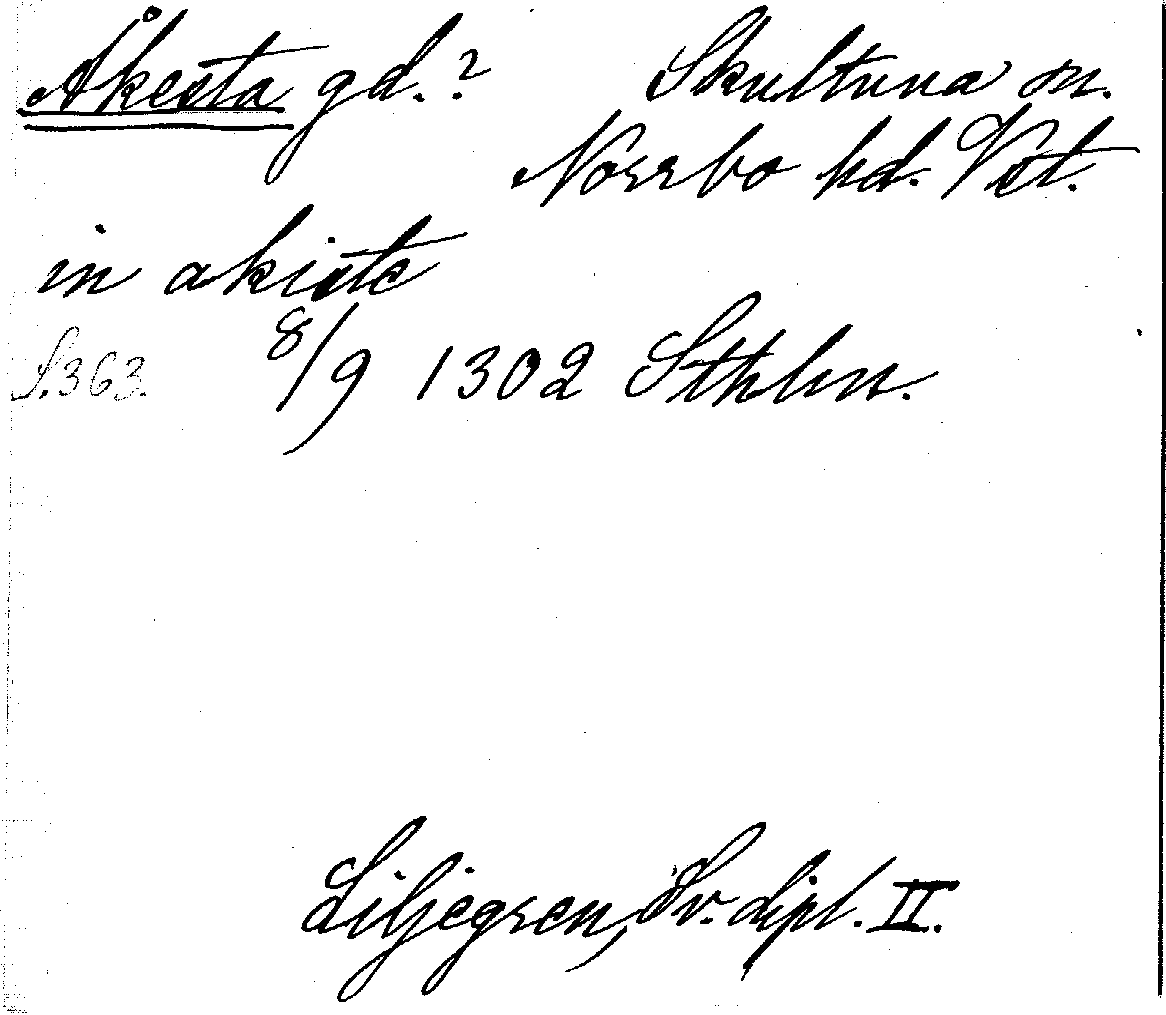 Åkesta gd.? Skultuna sn.
Norrbo hd. Vstl.
in akiste
S. 363. 8/9 1302 Sthlm.
Liljegren, Sv. dipl. II.